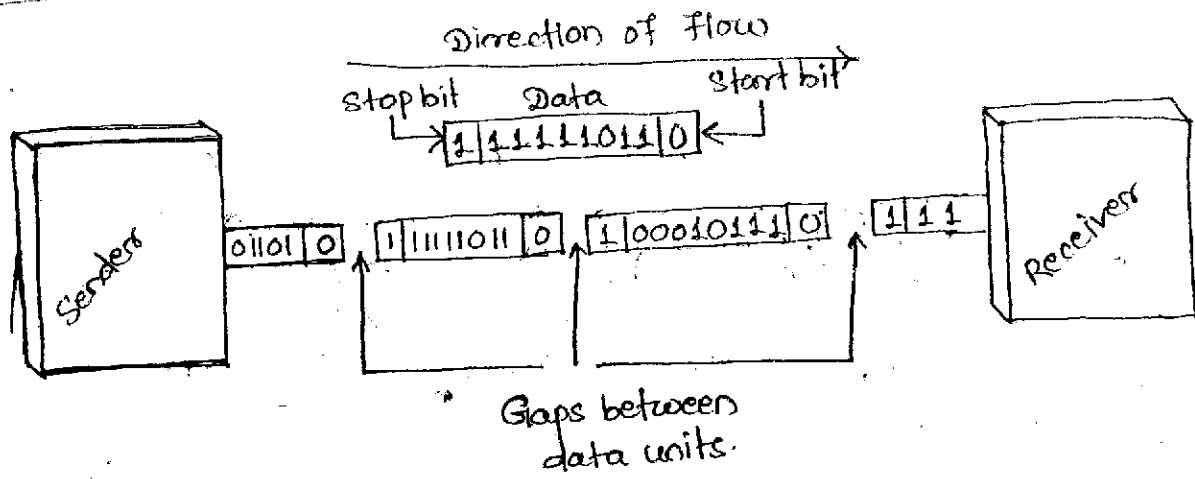 Dirrection of Flow
Stop bit Data Start bit
1 11111011 0
Senderr
01101 0
1 11111011 0
1 00010111 0
1 11
Receiverr
Gaps between
data units.